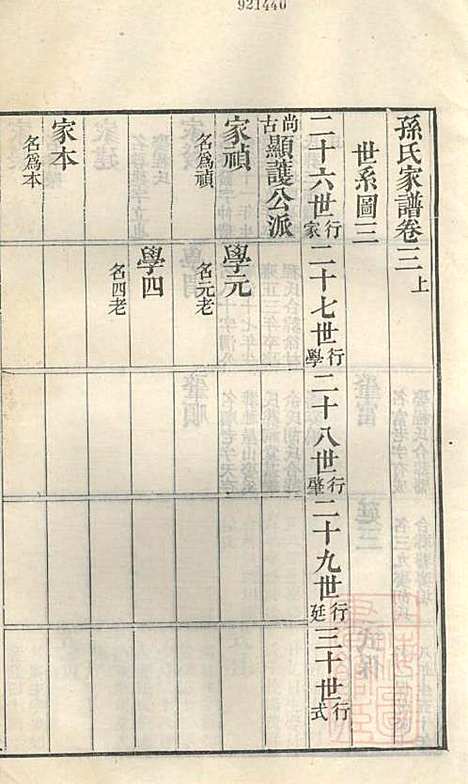 921440
孫氏家譜卷三上
世系圖三
二十六世行家
二十七世行學
二十八世行肇
二十九世行廷
三十世行式
尚古顯護公派
家禎
名爲禎
學元
名元老
學四
名四老
家本
名爲本